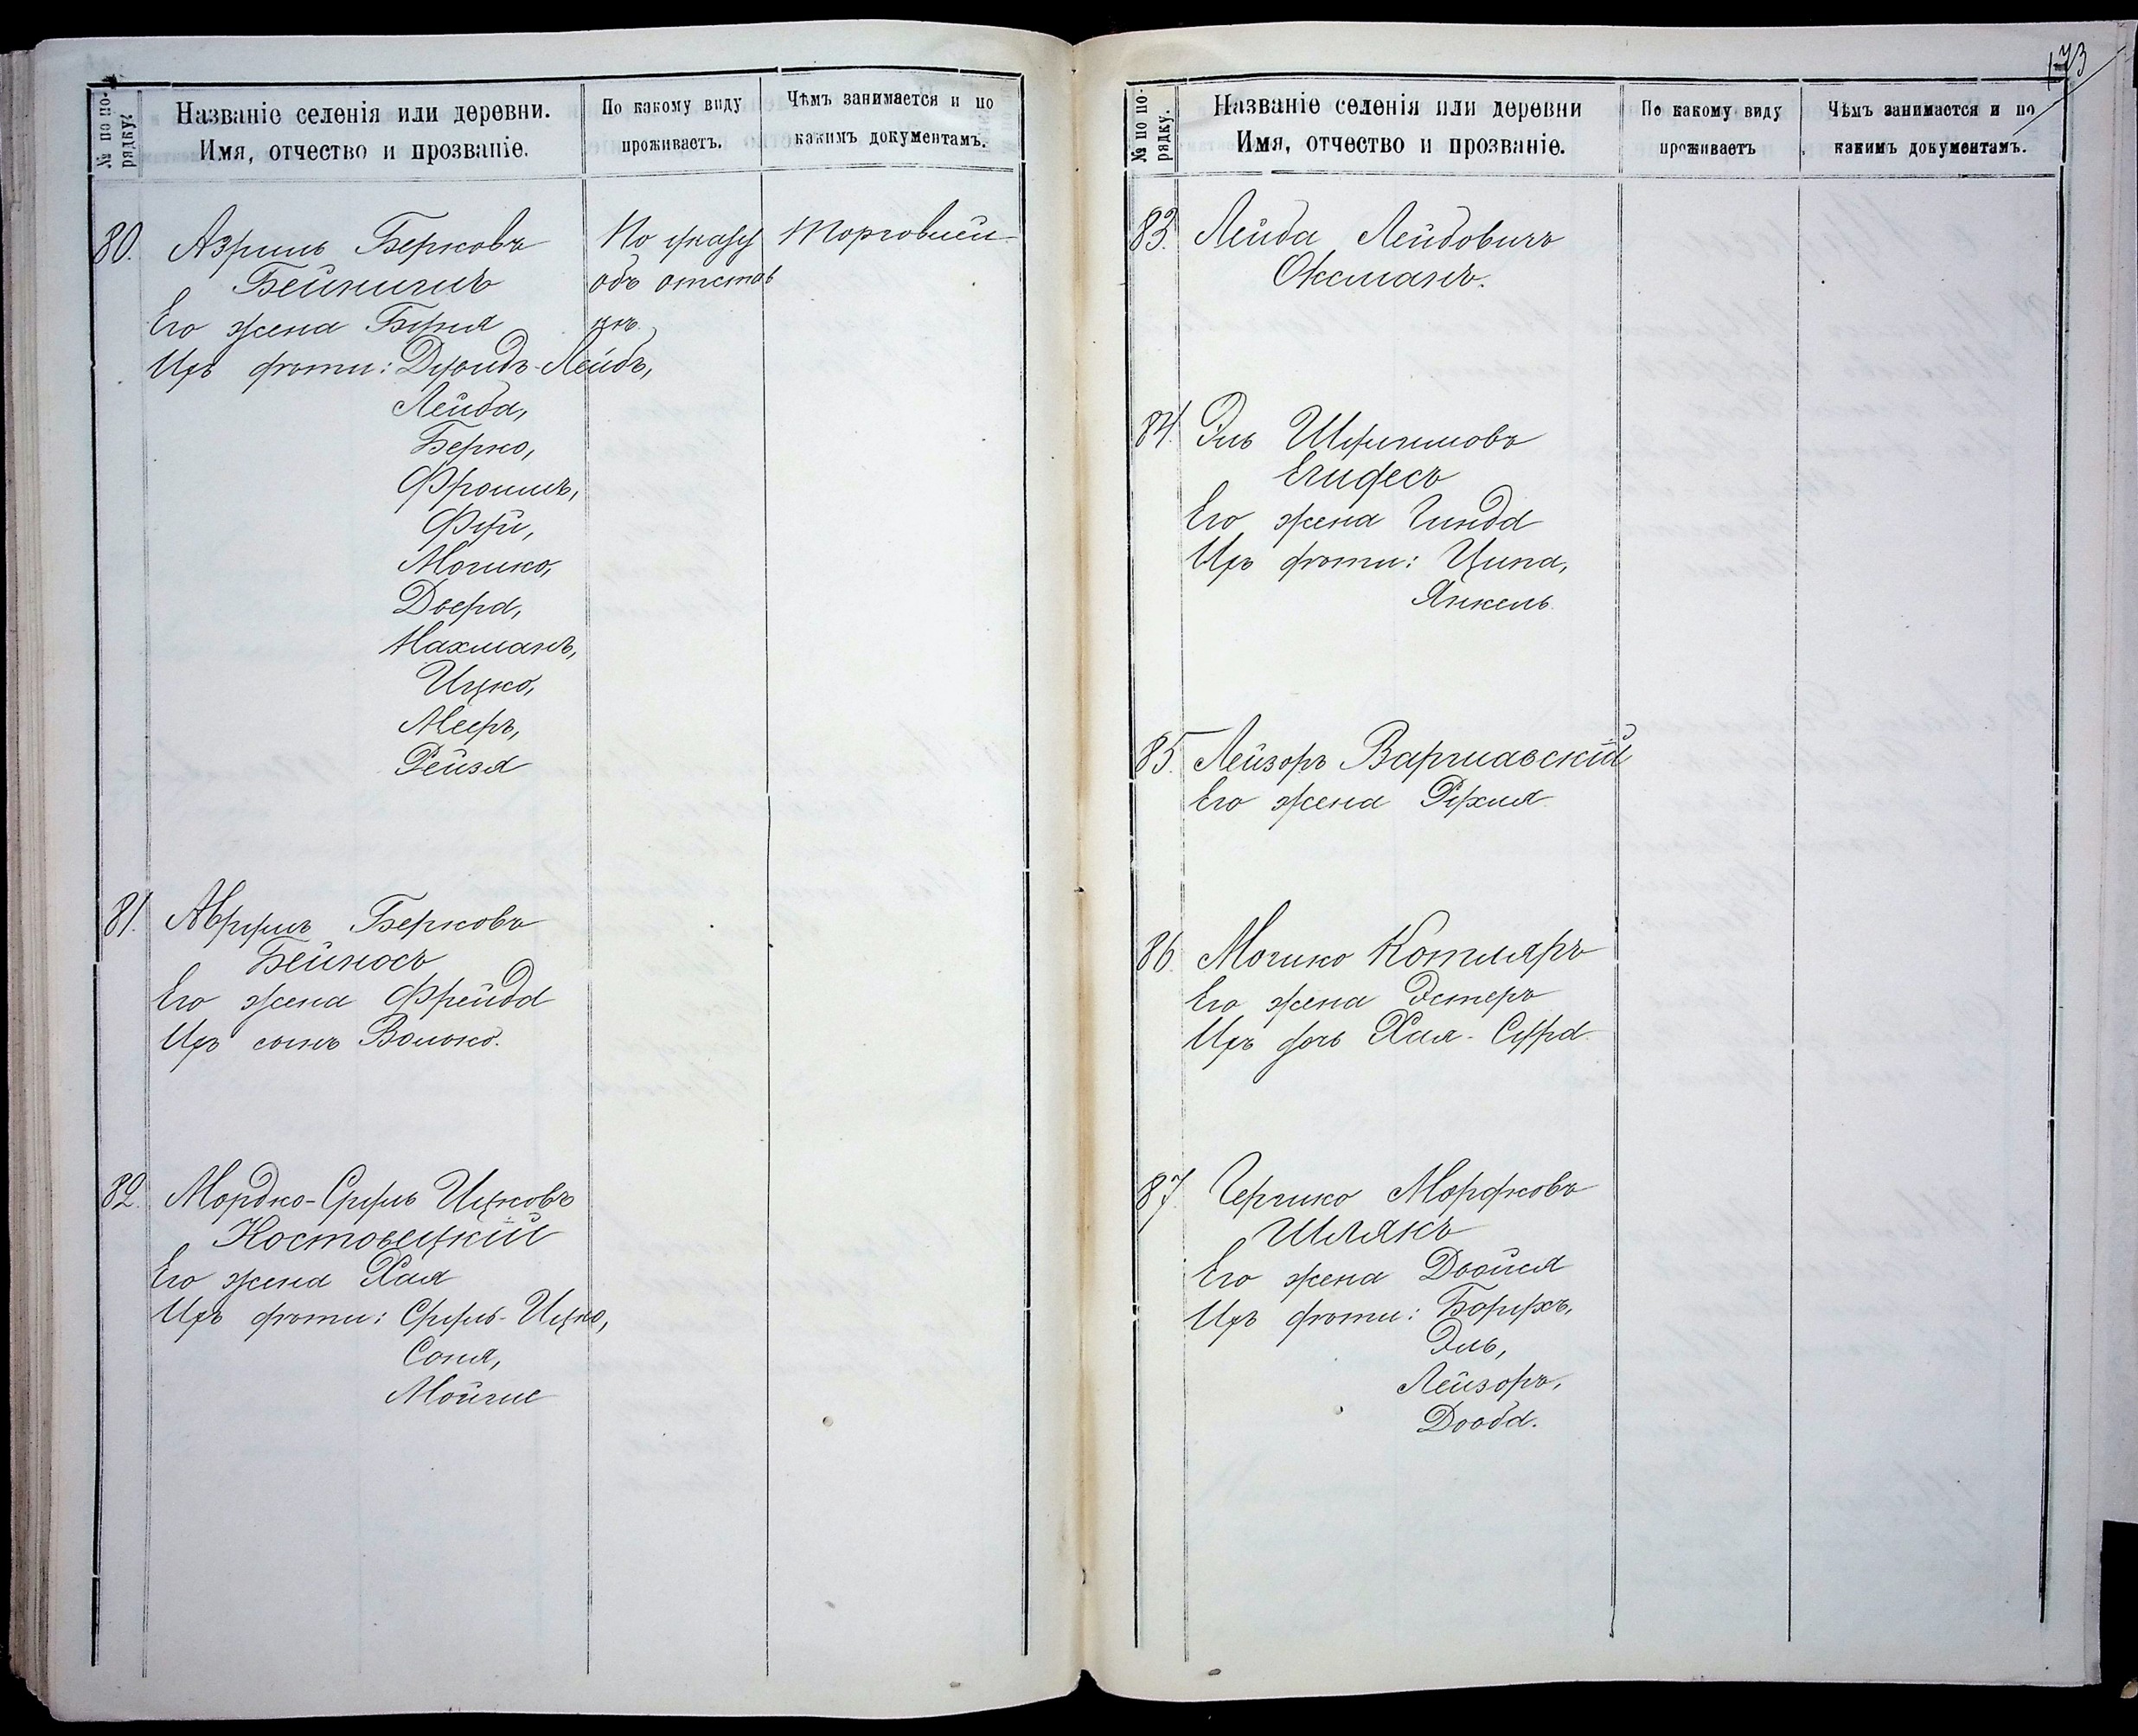 № по порядку.
Названіе селенія или деревни.
Имя, отчество и прозваніе.
По какому виду
проживаетъ.
Чѣмъ занимается и по
какимъ документамъ.
80. Азриль Берковъ
По указу
Торговлей
Бейнишъ
объ отстав
Его жена
кѣ
Ихъ дѣти: Дувидъ-Лейбъ,
Лейба,
Берко,
Фроимъ,
Мошко,
Двера,
Нахманъ,
Ицко,
Мееръ,
Рейзя
81. Аврумъ Берковъ
Бейносъ
Его жена Фрейда
Ихъ сынъ Волько.
82. Мордко-Сруль Ицковъ
Костовецкій
Его жена Хая
Ихъ дѣти: Сруль-Ицко,
Соня,
Мойше
173
№ по порядку.
Названіе селенія или деревни
Имя, отчество и прозваніе.
По какому виду
проживаетъ
Чѣмъ занимается и по
какимъ документамъ.
83. Лейба Лейбовичъ
Оксманъ.
84. Эль
Егудесъ
Его жена Гинда
Ихъ дѣти: Ципа,
Янкель
85. Лейзоръ Варшавскій
Его жена Рухля
86. Мошко Котляръ
Его жена Эстеръ
Ихъ дочь Хая-Сура
87. Гершко Мордковъ
Шлякъ
Его жена Двойся
Ихъ дѣти: Борухъ,
Эль,
Лейзоръ,
Двойда.